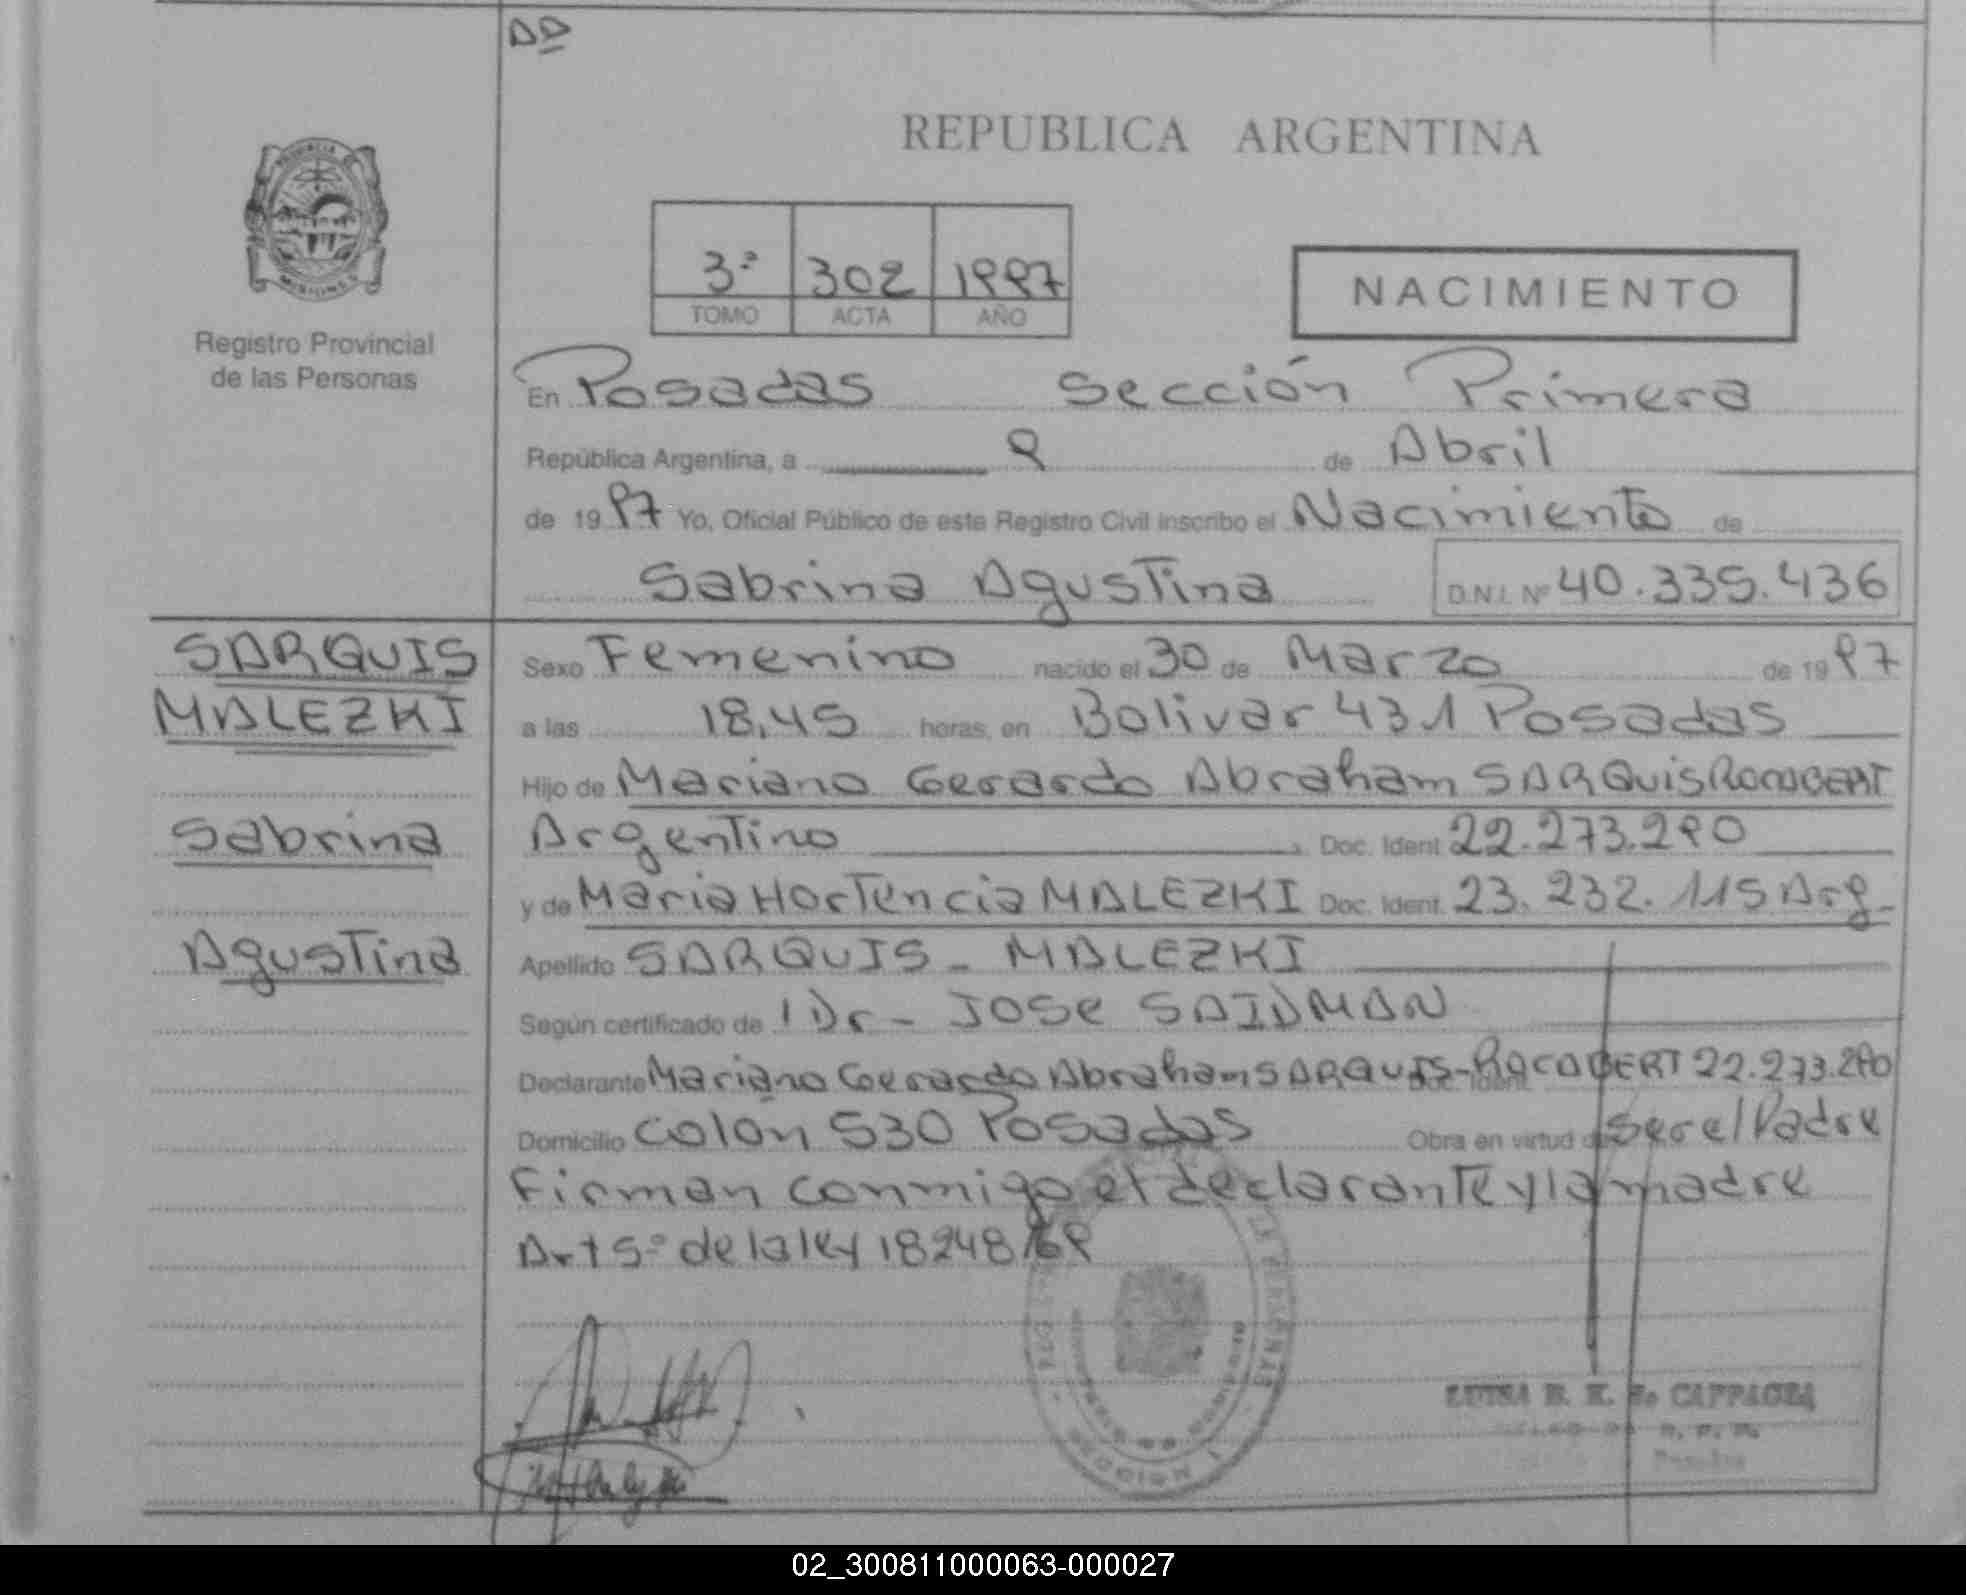 DD
REPUBLICA ARGENTINA
PROVINCIA DE
MISIONES
3ª 302 1997
TOMO ACTA AÑO
NACIMIENTO
Registro Provincial
de las Personas
En Posadas Sección Primera
República Argentina, a 9 de Abril
de 1997 Yo, Oficial Público de este Registro Civil inscribo el Nacimiento de
Sabrina Agustina D.N.I. Nº 40.335.436
SARQUIS
Sexo Femenino nacido el 30 de Marzo de 1997
MALEZKI
a las 18,45 horas, en Bolivar 431 Posadas
Hijo de Mariano Gerardo Abraham SARQUIS ROCABERT
Sabrina
Argentino, Doc. Ident. 22.273.290
y de Maria Hortencia MALEZKI Doc. Ident. 23.232.115 Arg.
Agustina
Apellido SARQUIS - MALEZKI
Según certificado de 1 Dr - JOSE SAIDMAN
Declarante Mariano Gerardo Abraham SARQUIS-ROCABERT 22.273.290
Domicilio Colón 530 Posadas Obra en virtud de Ser el Padre
Firman conmigo el declarante y la madre
Art 5º de la ley 18248/69
LUISA E. K. de CAPPAGLA
Posadas
02_300811000063-000027